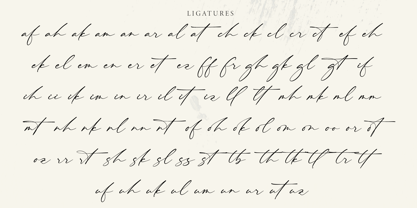 LIGATURES
af ah ak am an ar al at ch ck cl cr ct ef eh
ek el em en er et ez ff fr gh gk gl gt if
ih ii ik im in ir il it iz ll lt mh mk ml mm
mt nh nk nl nn nt of oh ok ol om on oo or ot
oz rr rt sh sk sl ss st tb th tk tl tr tt
uf uh uk ul um un ur ut uz